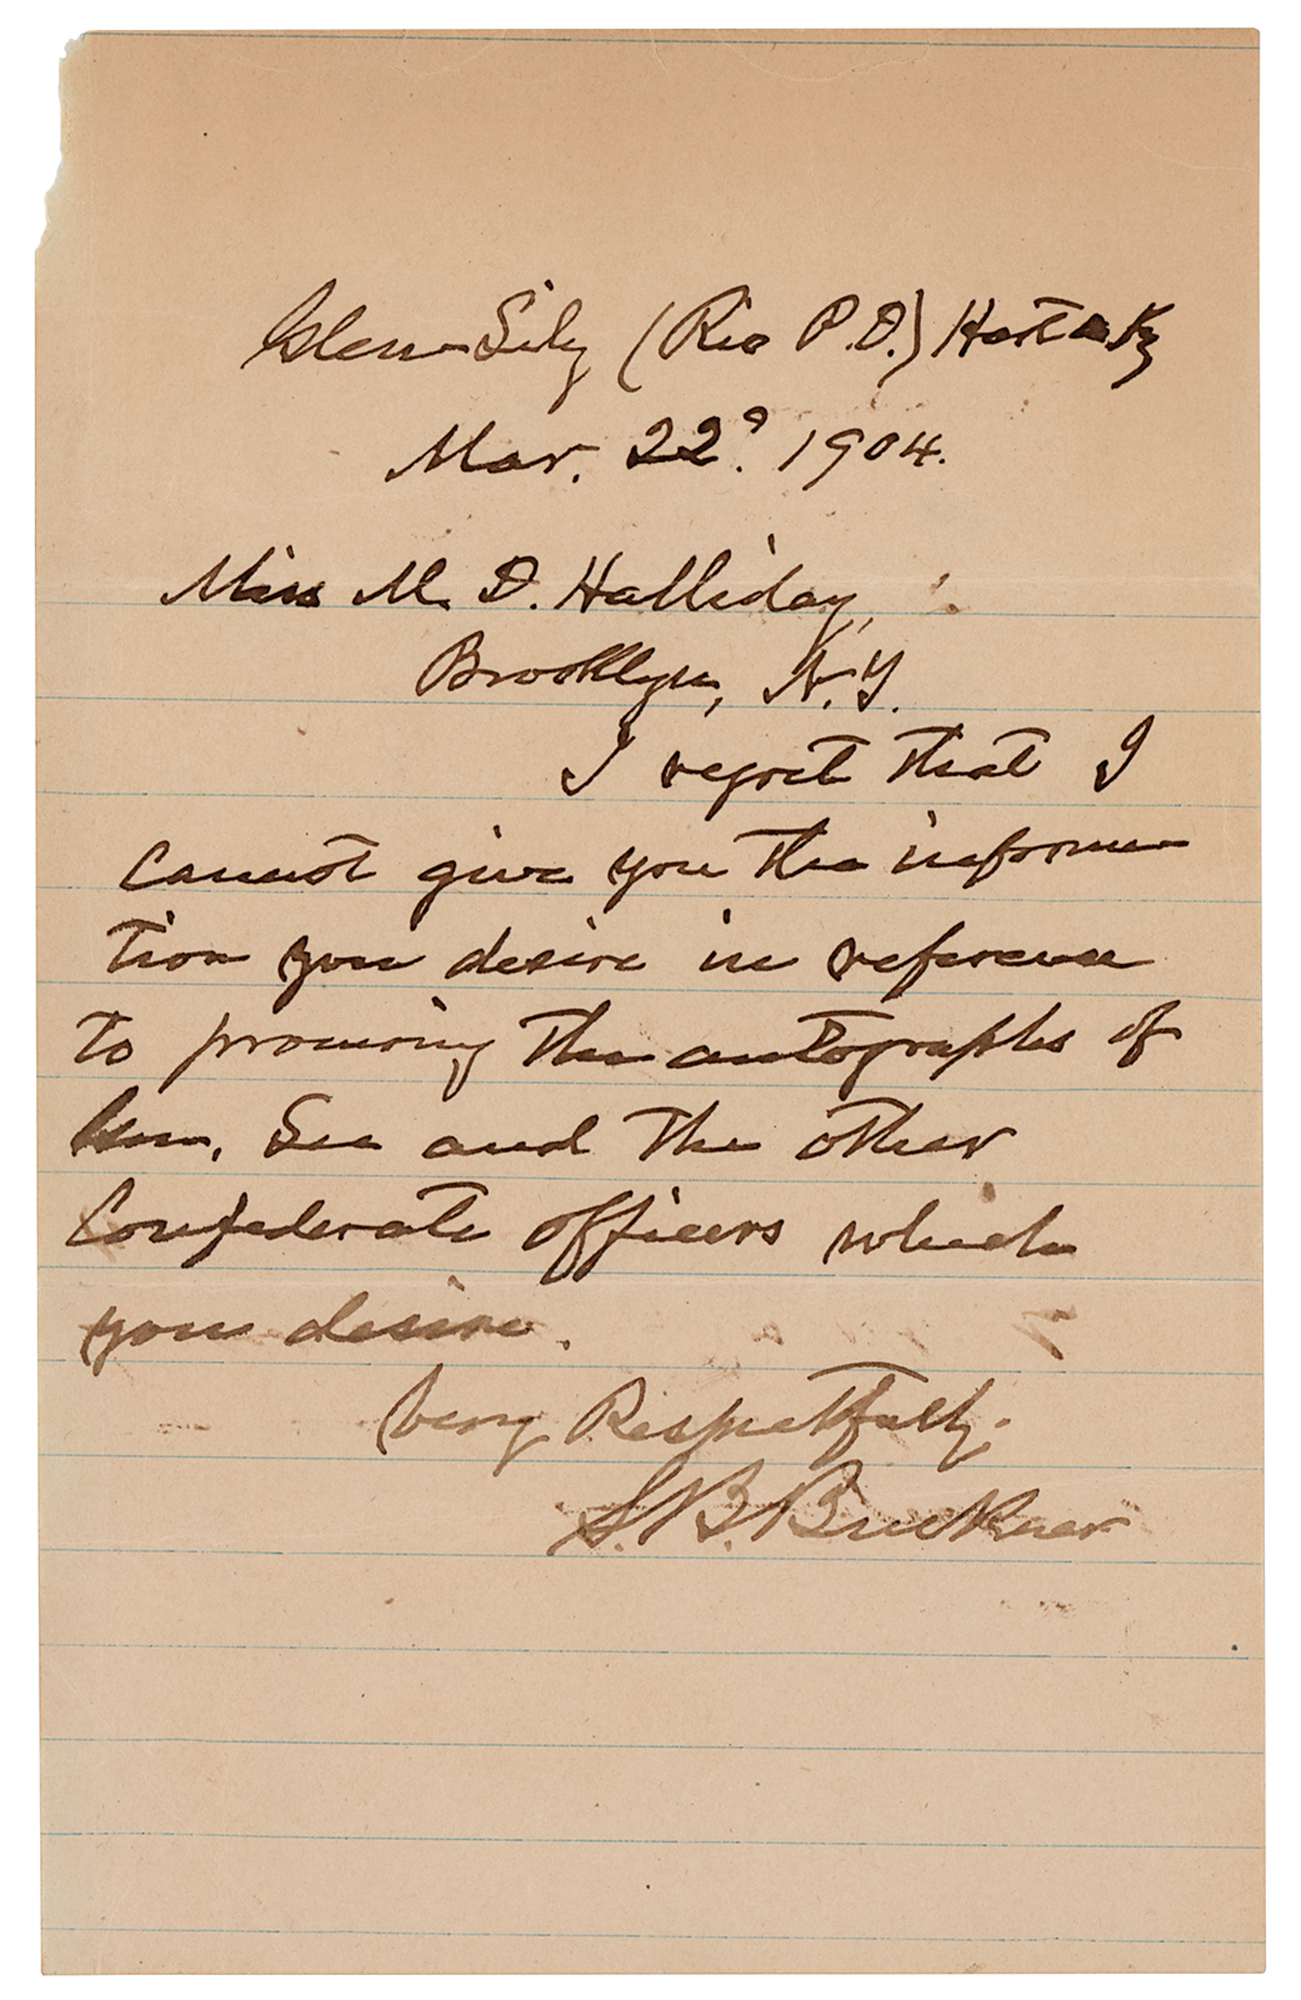 Glen Lily (Rio P.O.) Hart Co Ky
Mar. 22d. 1904.
Miss M. D. Halliday,
Brooklyn, N.Y.
I regret that I
cannot give you the informa
tion you desire in reference
to procuring the autographs of
Gen. Lee and the other
Confederate officers which
you desire.
Very Respectfully,
S. B. Buckner